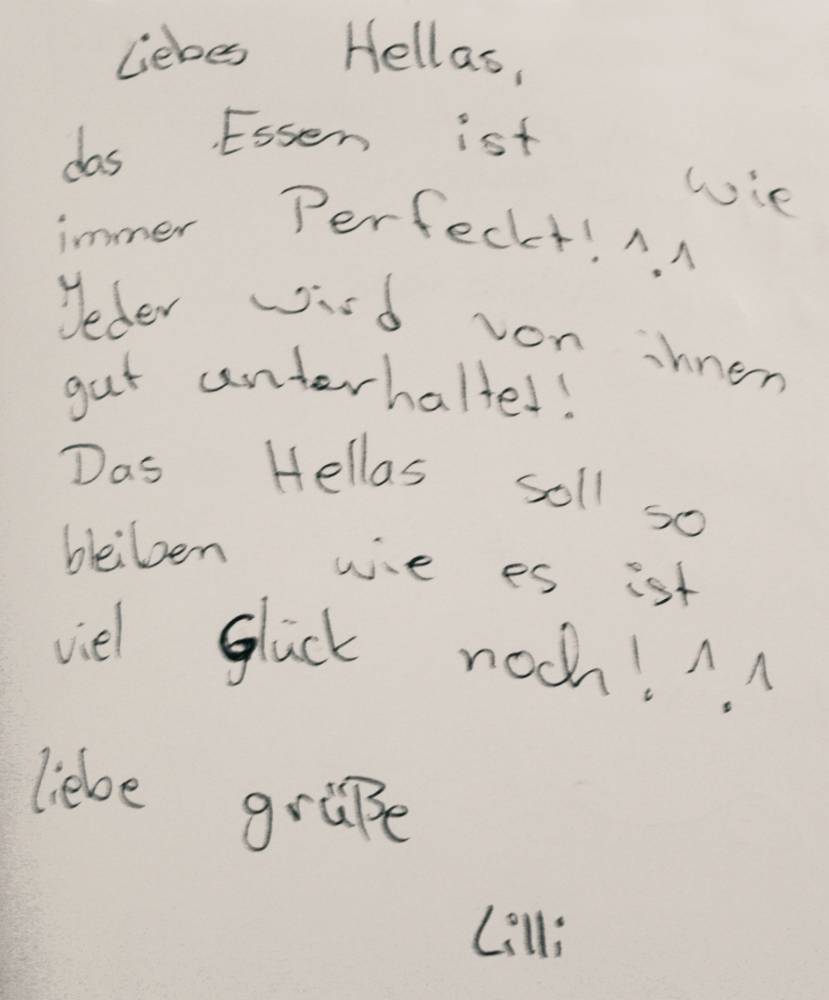 Liebes Hellas,
das Essen ist wie
immer Perfeckt! ^.^
Jeder wird von ihnen
gut unterhaltet!
Das Hellas soll so
bleiben wie es ist
viel Glück noch! ^.^
liebe grüße
Lilli